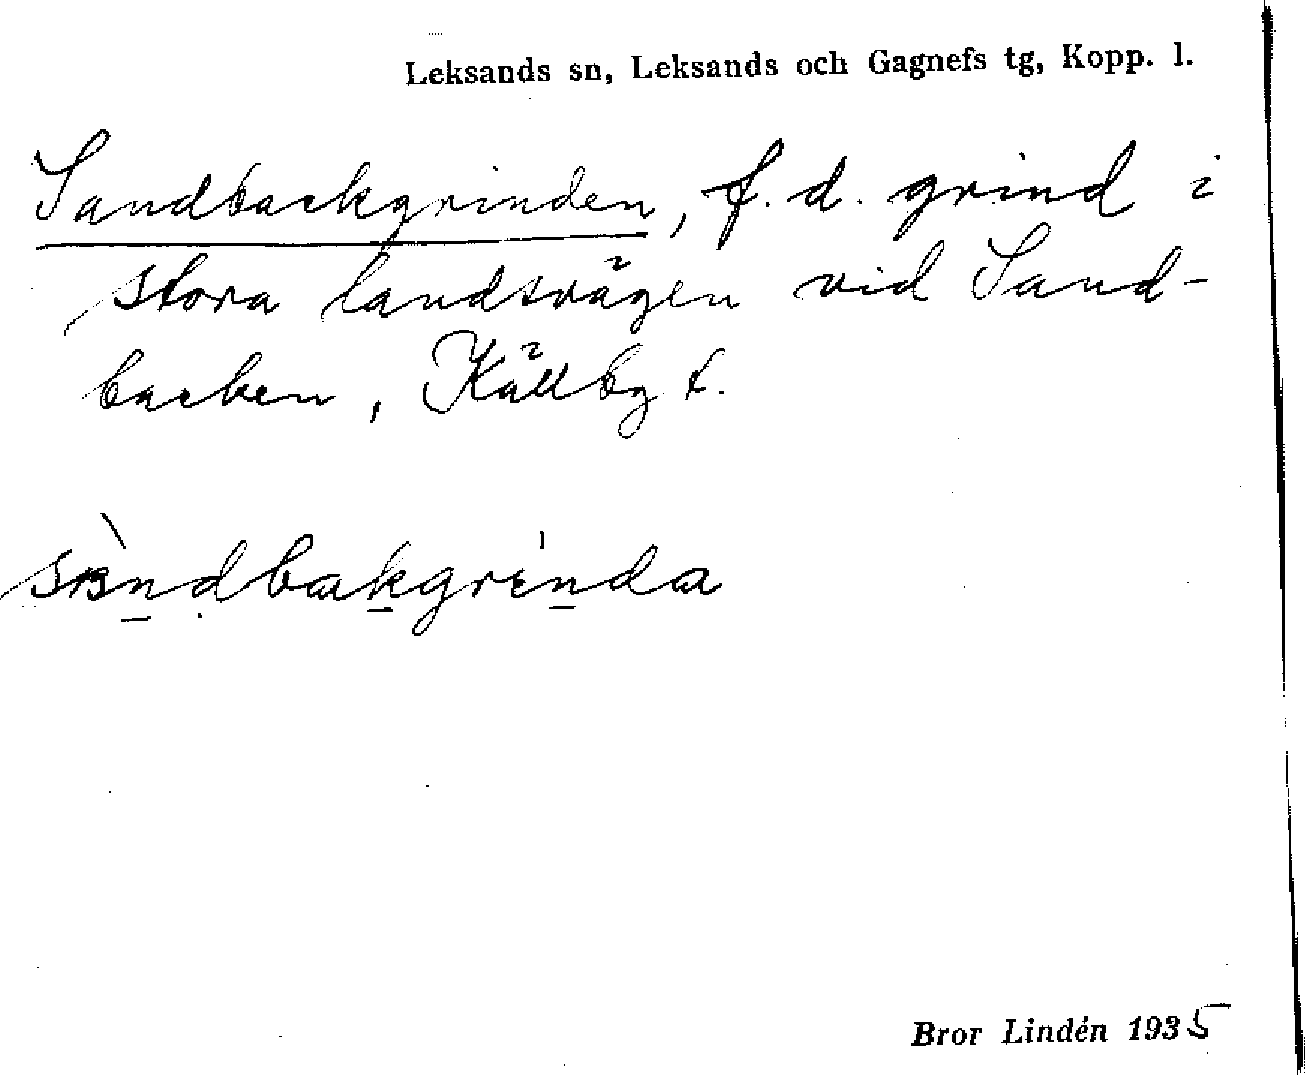 Leksands sn, Leksands och Gagnefs tg, Kopp. l.
Sandbackgrinden, f. d. grind i
stora landsvägen vid Sand-
backen, Källby f.
sàndbakgrinda
Bror Lindén 1935